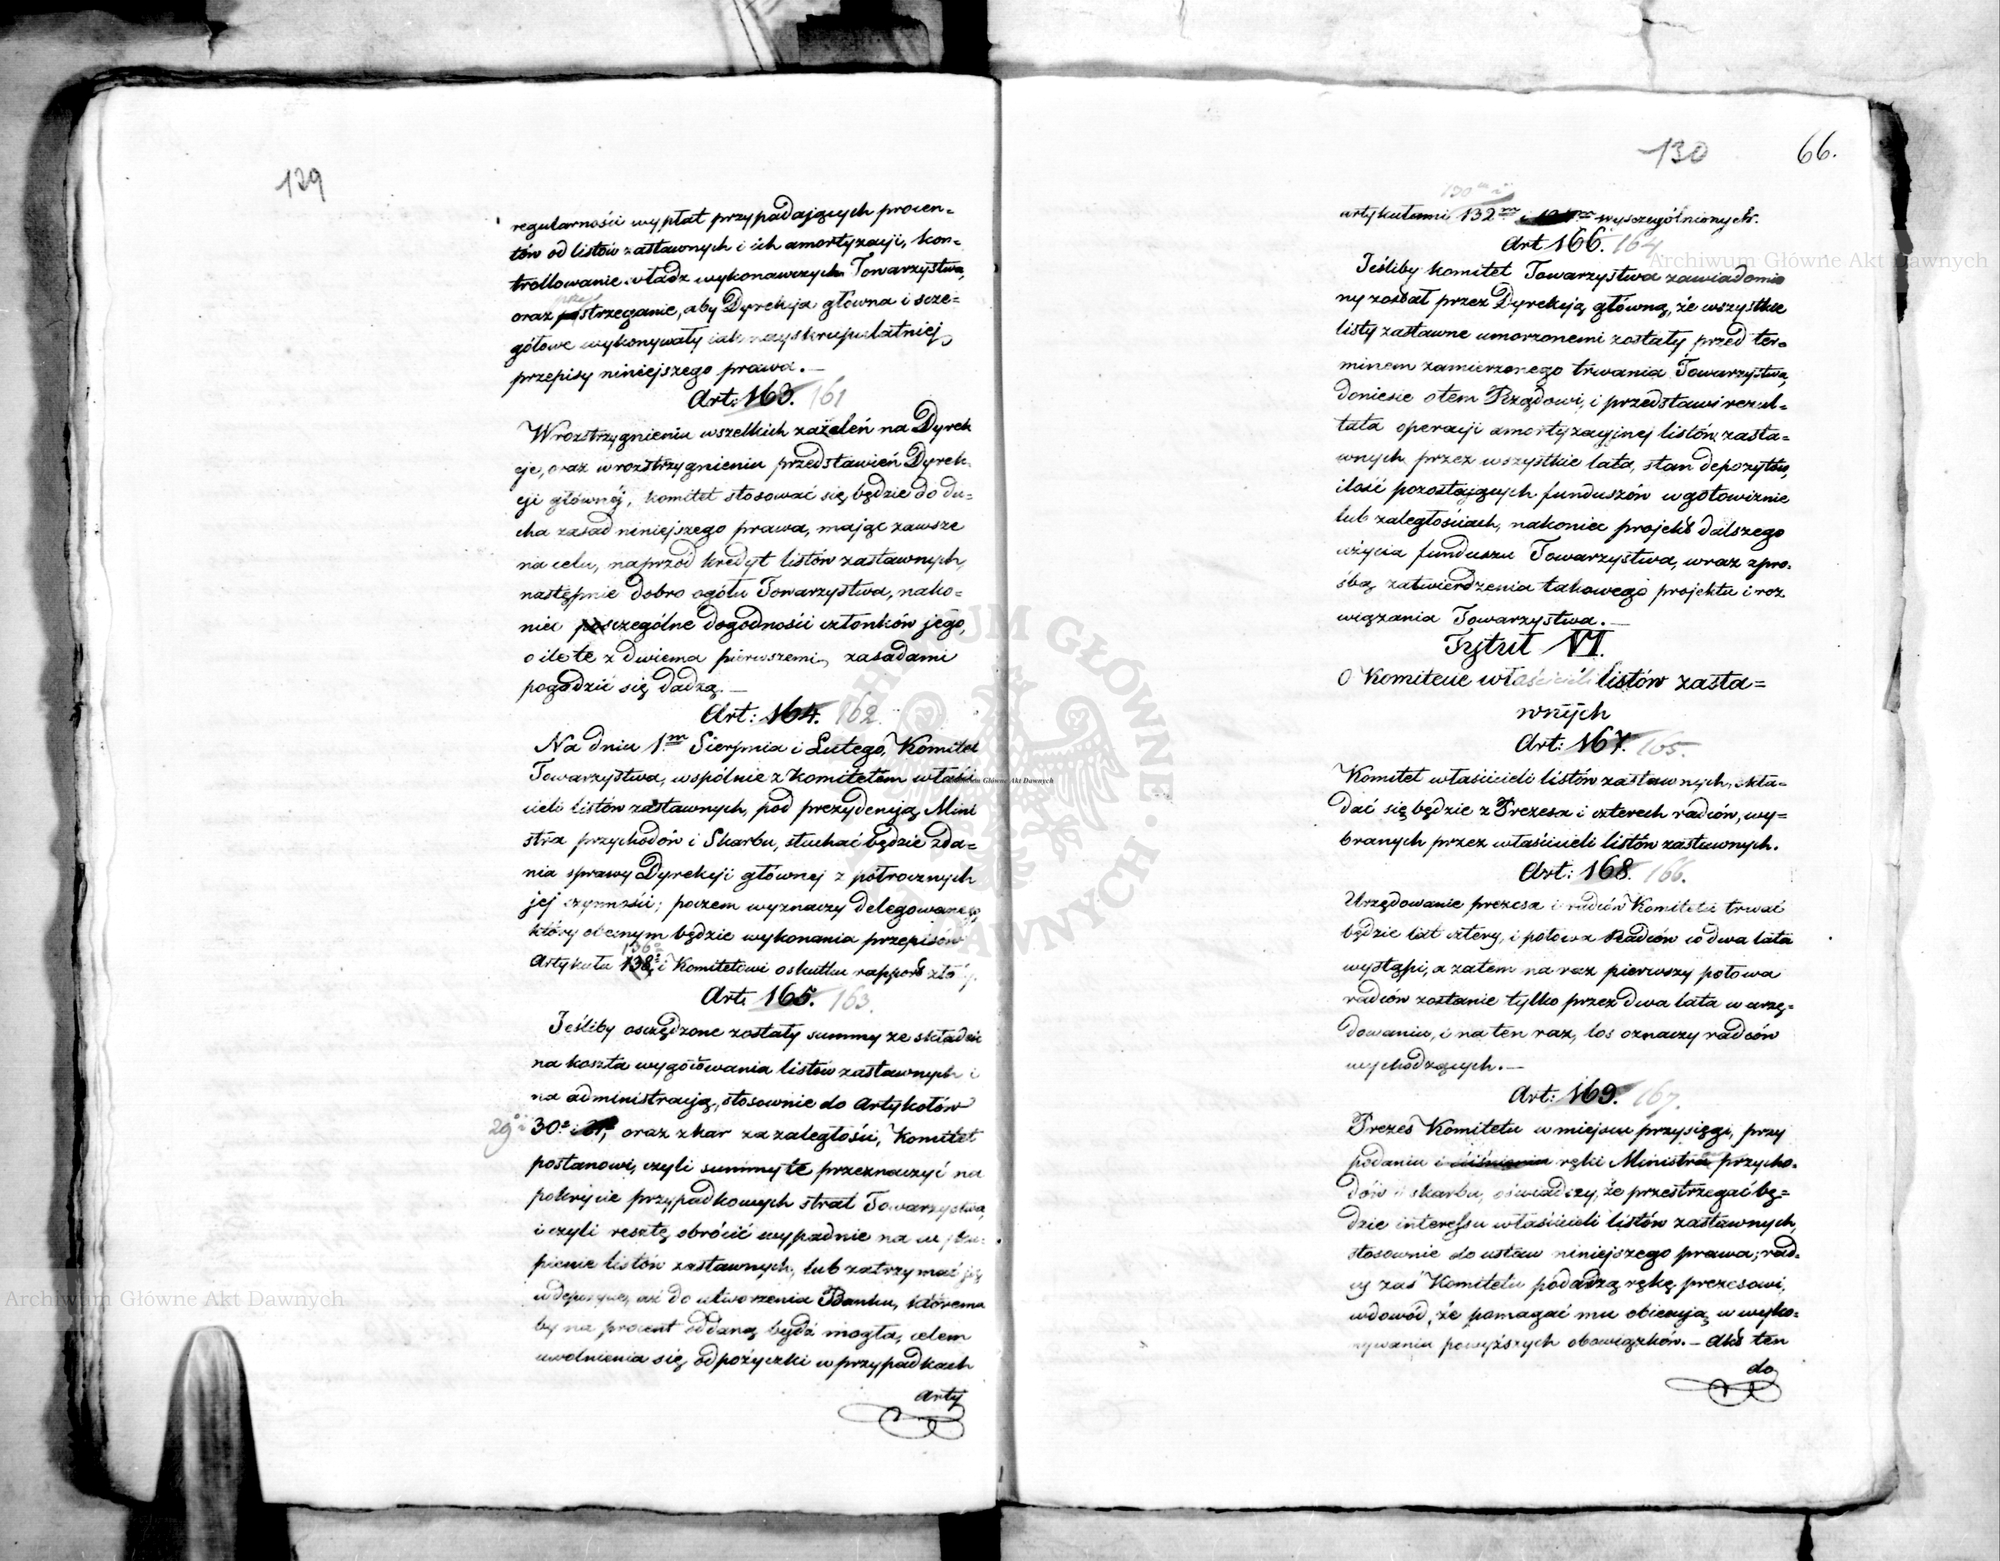 129
regularności wypłat przypadających procen=
tów od listów zastawnych i ich amortyzacji, kon=
trollowanie władz wykonawczych Towarzystwa,
oraz przestrzeganie, aby Dyrekcja główna i szcze=
gółowe wykonywały iak nayskrupulatniej
przepisy niniejszego prawa.—
Art: 163. 161
W rozstrzygnieniu wszelkich zażaleń na Dyrek
cje, oraz w rozstrzygnieniu przedstawień Dyrek
cji głównéj, komitet stosować się będzie do du=
cha zasad niniejszego prawa, mając zawsze
na celu, naprzód kredyt listów zastawnych,
następnie dobro ogółu Towarzystwa, nako=
niec szczególne dogodności członków jego,
o ile te z dwiema pierwszemi zasadami
pogodzić się dadzą.—
Art: 164. 162.
Na dniu 1.m Sierpnia i Lutego, Komitet
Towarzystwa, wspólnie z Komitetem właści
cieli listów zastawnych, pod prezydencją Mini
stra przychodów i Skarbu, słuchać będzie zda=
nia sprawy Dyrekcji głównej z półrocznych
jej czynności; poczem wyznaczy delegowanego,
który obecnym będzie wykonania przepisów
136.
Artykułu 138. i Komitetowi o skutku rapport złoży.
Art. 165. 163.
Jeśliby oszczędzone zostały summy ze składek
na koszta wygotowania listów zastawnych i
na administracją, stosownie do Artykułów
29 i 30. i oraz z kar za zaległości, Komitet
postanowi, czyli summy te przeznaczyć na
pokrycie przypadkowych strat Towarzystwa,
i czyli resztę obrócić wypadnie na wyku=
pienie listów zastawnych, lub zatrzymać ją
w depozycie, aż do utworzenia Banku, któremu
by na procent oddaną bydź mogła, celem
uwolnienia się od pożyczki w przypadkach
arty
130 66.
130 i
artykułami 132.m i wyszczególnionych.
Art 166. 164
Jeśliby komitet Towarzystwa zawiadomio
ny został przez Dyrekcją główną, że wszystkie
listy zastawne umorzonemi zostały przed ter=
minem zamierzonego trwania Towarzystwa,
doniesie o tem Rządowi, i przedstawi rezul=
tata operacji amortyzacyjnej listów zasta=
wnych przez wszystkie lata, stan depozytów,
ilość pozostających funduszów w gotowiznie
lub zaległościach, nakoniec projekt dalszego
użycia funduszu Towarzystwa, wraz z pro=
śbą zatwierdzenia takowego projektu i roz
wiązania Towarzystwa.—
Tytuł VI.
O Komitecie właścicieli listów zasta=
wnych
Art: 167. 165.
Komitet właścicieli listów zastawnych, skła=
dać się będzie z Prezesa i czterech radców, wy=
branych przez właścicieli listów zastawnych.
Art: 168. 166.
Urzędowanie prezesa i radców Komitetu trwać
będzie lat cztery, i połowa Radców co dwa lata
wystąpi, a zatem na raz pierwszy połowa
radców zostanie tylko przez dwa lata w urzę=
dowaniu, i na ten raz, los oznaczy radców
wychodzących.—
Art: 169. 167.
Prezes Komitetu w miejscu przysięgi, przy
podaniu i ściśnieniu ręki Ministra przycho=
dów i skarbu, oświadczy, że przestrzegać bę=
dzie interessu właścicieli listów zastawnych,
stosownie do ustaw niniejszego prawa; rad=
cy zaś Komitetu podadzą rękę prezesowi,
w dowód, że pomagać mu obiecują w wyko=
nywaniu powyższych obowiązków.— Akt ten
do
Archiwum Główne Akt Dawnych
Archiwum Główne Akt Dawnych
ARCHIWUM GŁÓWNE AKT DAWNYCH